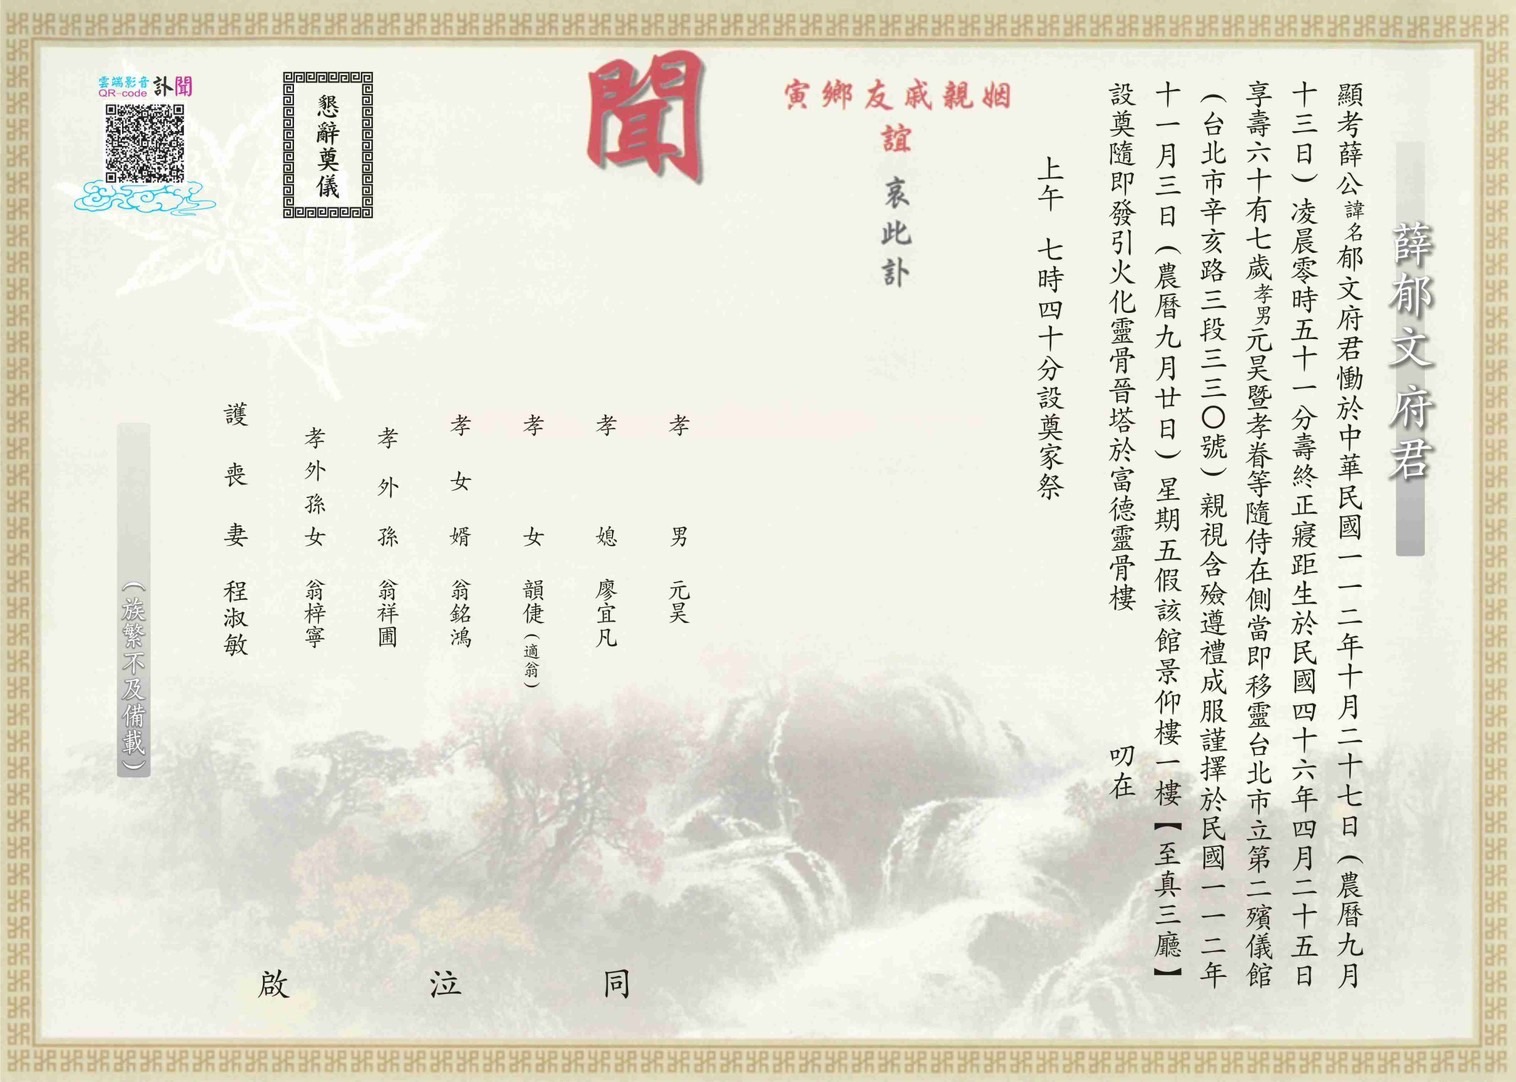 薛郁文府君
顯考薛公諱名郁文府君慟於中華民國一一二年十月二十七日（農曆九月
十三日）凌晨零時五十一分壽終正寢距生於民國四十六年四月二十五日
享壽六十有七歲孝男元昊暨孝眷等隨侍在側當即移靈台北市立第二殯儀館
（台北市辛亥路三段三三〇號）親視含殮遵禮成服謹擇於民國一一二年
十一月三日（農曆九月廿日）星期五假該館景仰樓一樓【至真三廳】
設奠隨即發引火化靈骨晉塔於富德靈骨樓 叨在
上午 七時四十分設奠家祭
姻親戚友鄉寅
誼
哀此訃
聞
孝男 元昊
孝媳 廖宜凡
孝女 韻倢（適翁）
孝女婿 翁銘鴻
孝外孫 翁祥圃
孝外孫女 翁梓寧
護喪妻 程淑敏
同泣啟
（族繁不及備載）
懇辭奠儀
雲端影音 訃聞
QR-code